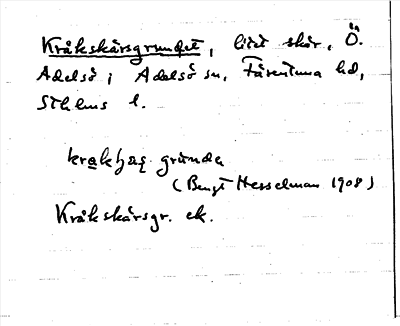 Kråkskärsgrundet, litet skär, Ö.
Adelsö i Adelsö sn, Färentuna hd,
Sthlms l.
grunda
(Bengt Hesselman 1908)
Kråkskärsgr. ek.